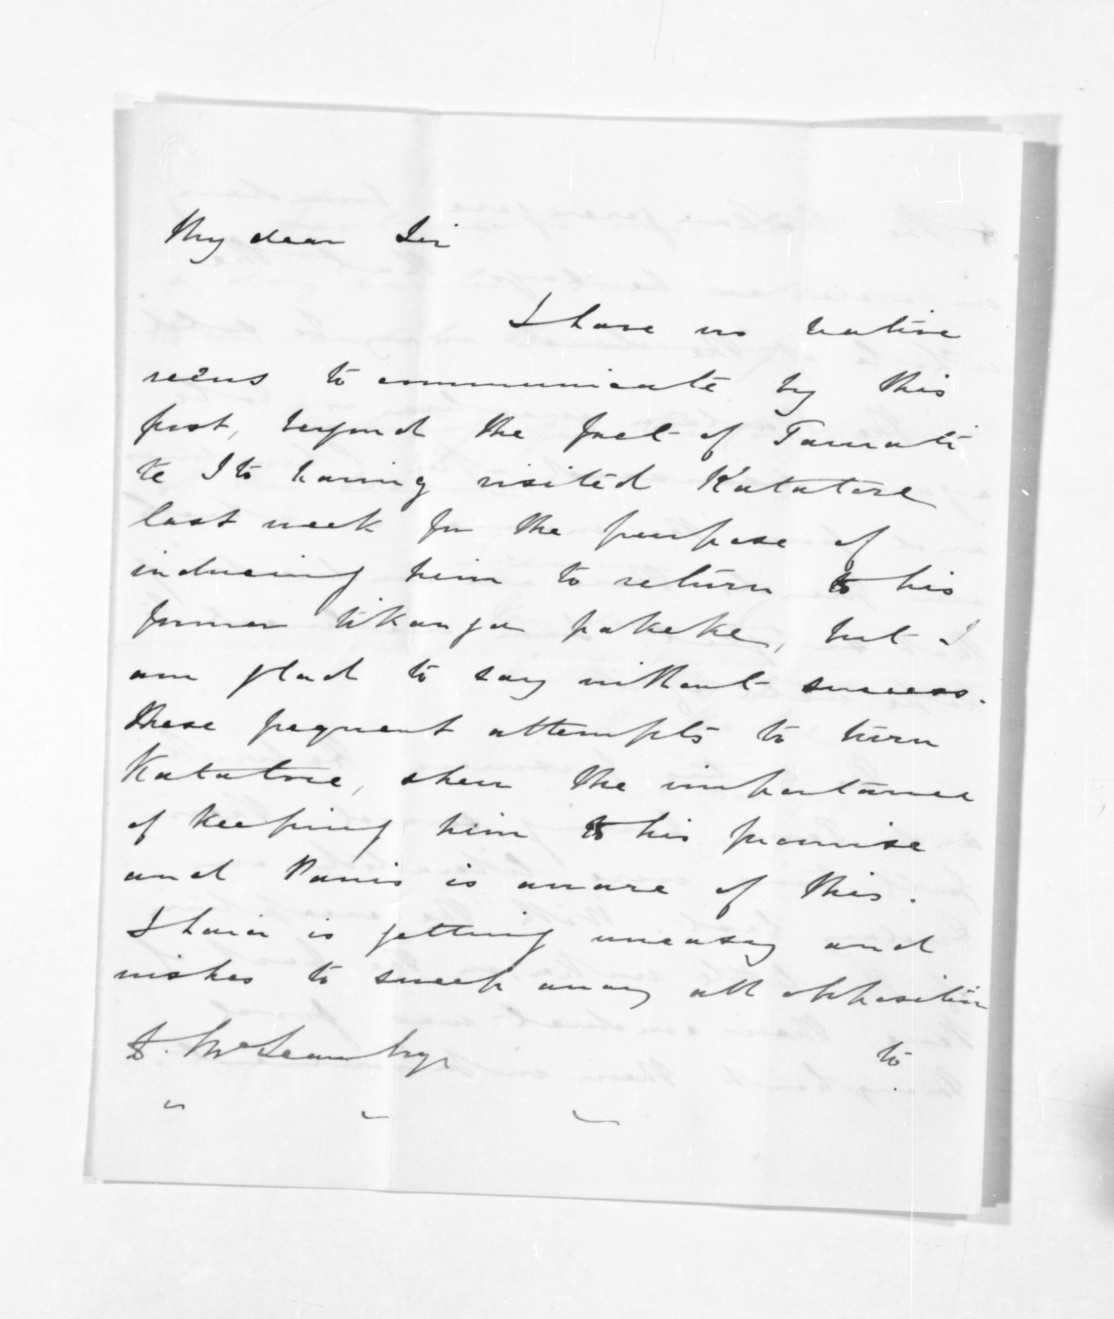 My dear Sir
I have no native
news to communicate by this
post, beyond the fact of Tamati
te Ito having visited Katatore
last week for the purpose of
inducing him to return to his
former tikanga pakeke, but I
am glad to say without success.
These frequent attempts to turn
Katatore, shew the importance
of keeping him to his promise
and is aware of this.
Ihaia is getting uneasy and
wishes to sweep away all opposition
D. McLean Esqr
to